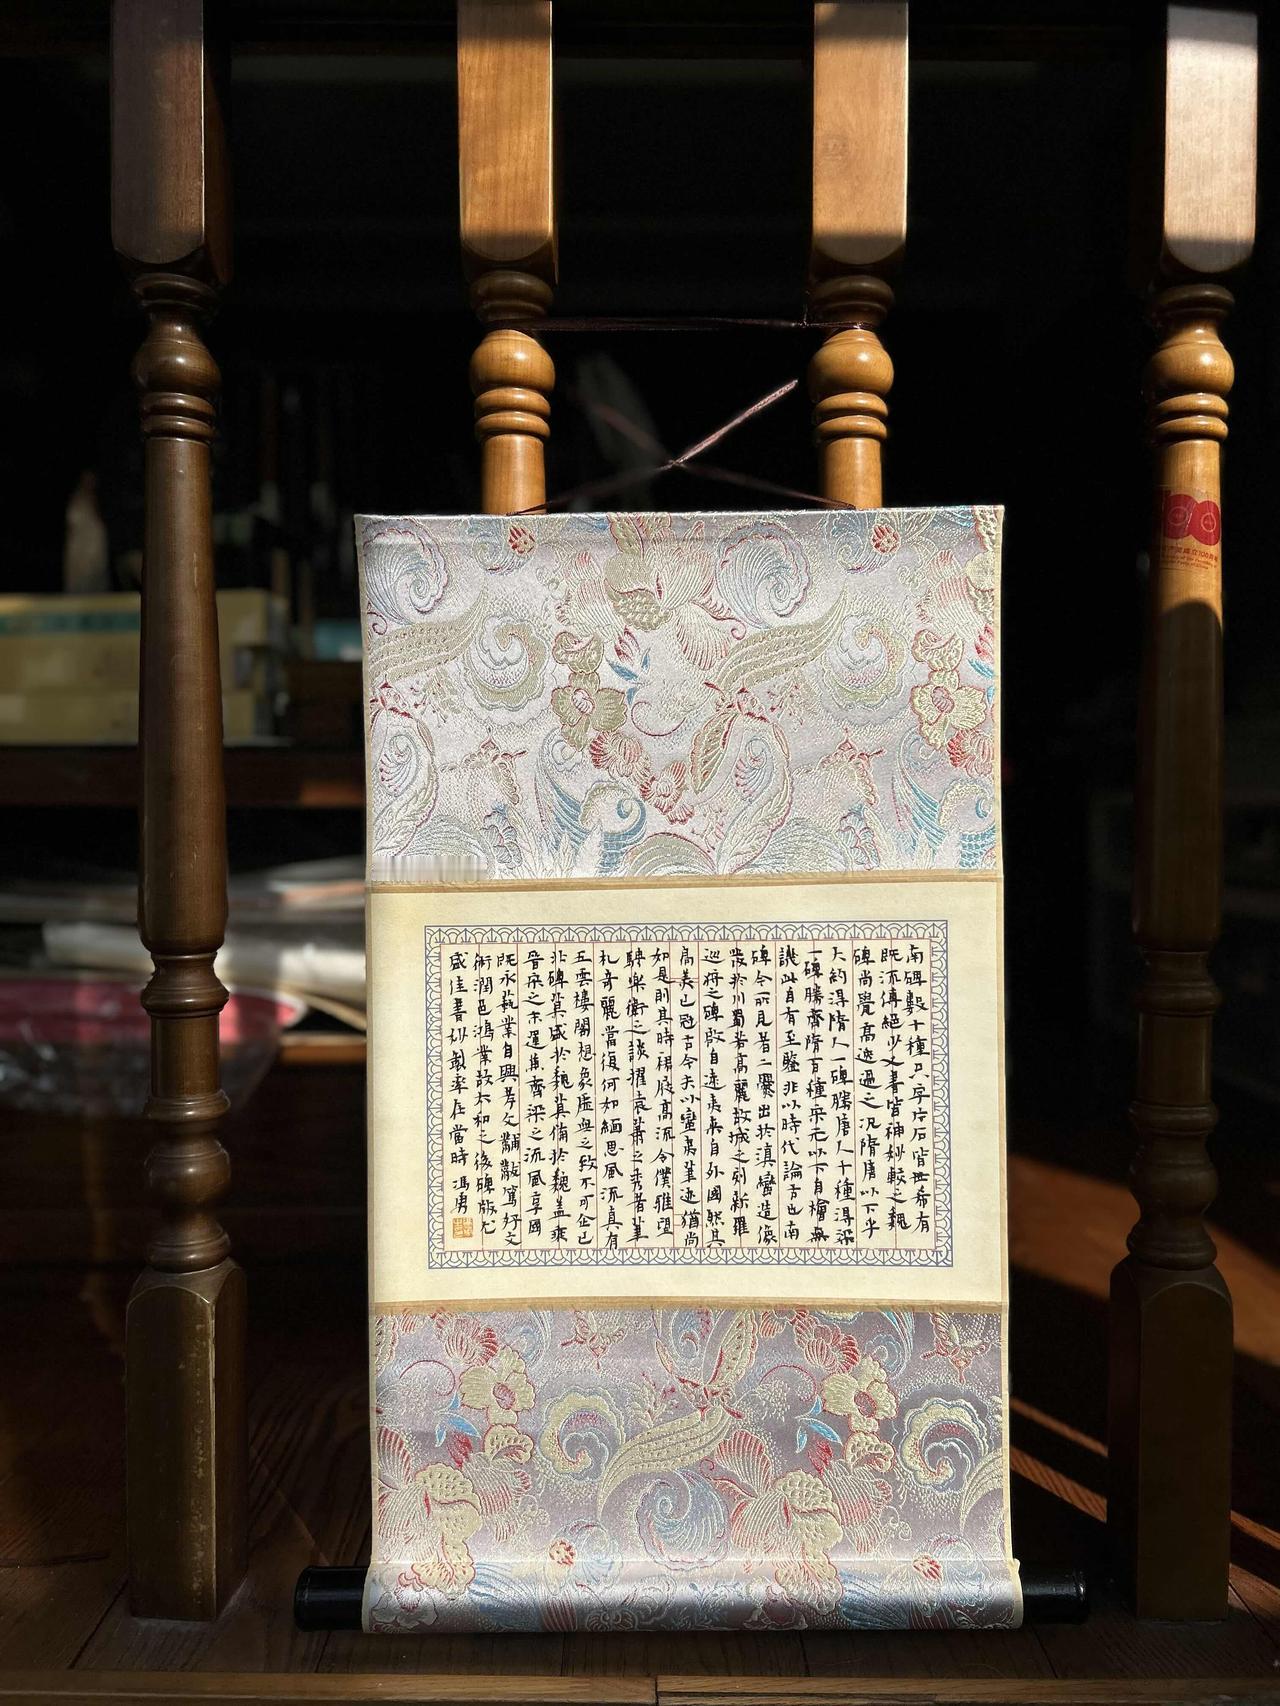 南碑數十種只字片石皆世希有
既流傳絕少又書皆神妙較之魏
碑尚覺高逸過之況隋唐以下乎
大約得隋人一碑勝唐人十種得梁
一碑勝齊隋百種宋元以下自檜無
譏此自有至鑒非以時代論古也南
碑今所見者二爨出於滇蠻造像
發於川蜀若高麗故城之刻新羅
巡狩之碑啟自遠夷來自外國然其
高美已冠古今夫以蠻夷筆迹猶尚
如是則其時裙屐高流令僕雅望
騁樂衛之談擢袁蕭之秀者筆
札奇麗當復何如緬思風流真有
五雲樓閣想象虛無之致不可企已
非碑莫盛於魏莫備於魏蓋乘
晉宋之末運兼齊梁之流風享國
既永藝業自興孝文黼黻篤好文
術潤色鴻業故太和之後碑版尤
盛佳書妙製率在當時 馮勇
100
成立100周年